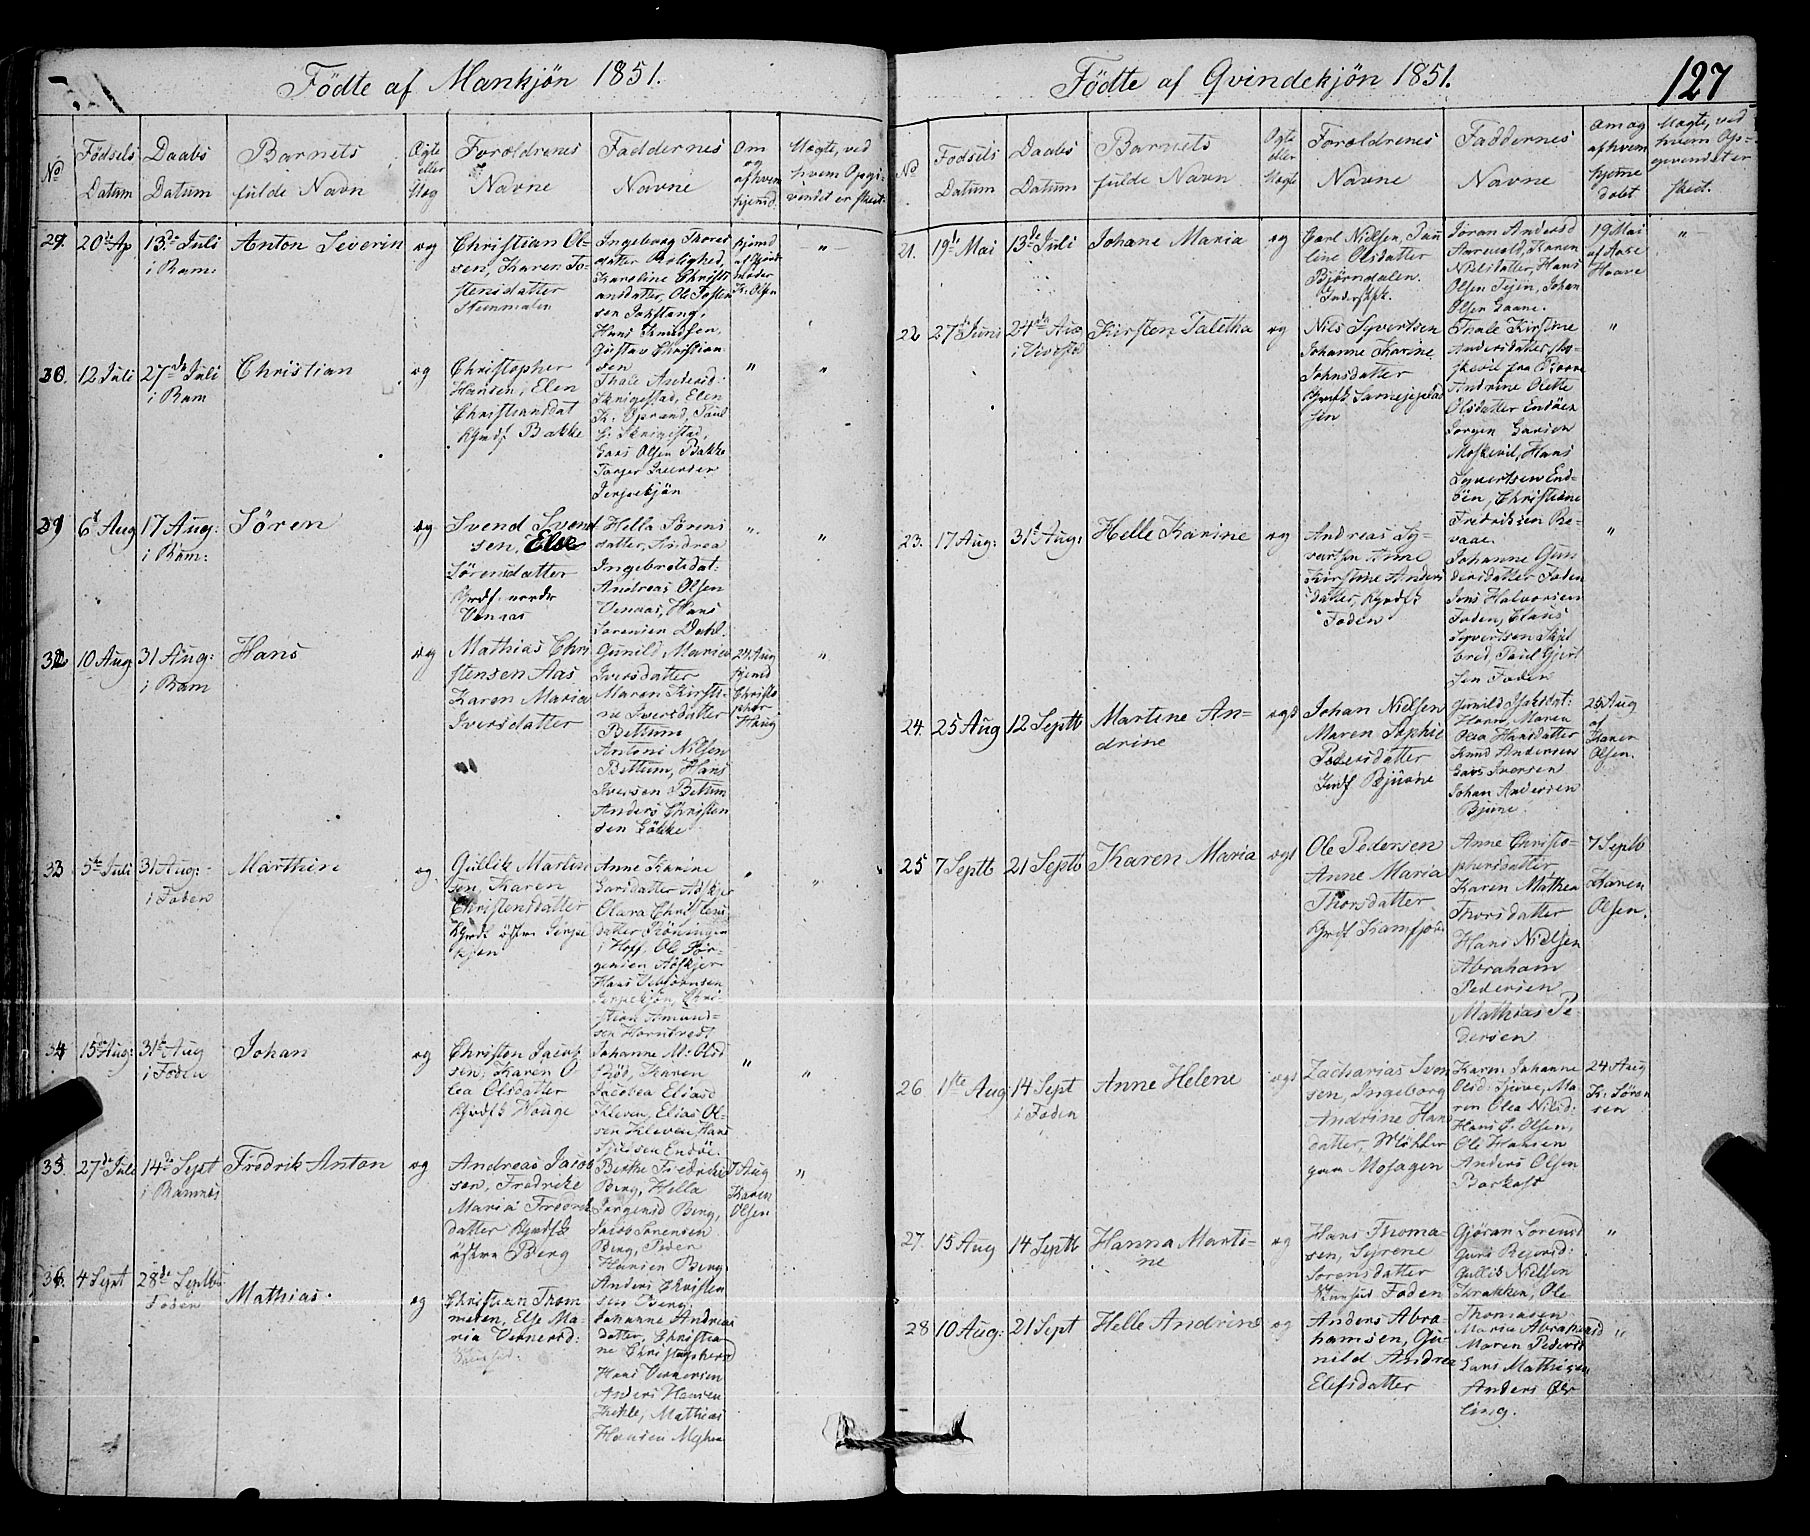 Födte af Mankjön 1851.
No
Födsels Datum
Daabs Datum
Barnets fulde Navn
Ægte eller Uæg
Forældrenes Navne
Faddernes Navne
Om og af hvem hjemd.
29. 20de Ap. 13de Juli i Ram: Anton Severin æg
Christian Ol-
sen, Karen To-
stensdatter
Ingeborg Thores
datter Rolighed,
Karoline Christi
ansdatter, Ole Tosten
sen
Hans Knudsen,
Gustav Christian
sen
hjemd
af Gjorde
moder
K: Olsen
30. 12 Juli 27de Juli i Ram Christian æg
Christopher
Hansen, Elen
Christiansdat
Gmdf Bakke
Thale Andersd:
Skrigestad, Elen
Skrigestad,
Lars Olsen Bakke
Torger Iversen
Jerpekjön
31 6t Aug 17 Aug: i Ram: Sören æg
Svend Svend
sen, Else
Sörensdatter
Gmdf nordre
Venaas
Hella Sörens
datter, Andrea
Ingebretsdat:
Andreas Olsen
Venaas, Hans
Sorensen Dahl.
32 10 Aug 31 Aug: i Ram Hans æg
Mathias Chri
stensen Aas
Karen Maria
Iversdatter
Gunild Maria
Iversdatter
Maren Kirsti-
ne Iversdatter
Bettum
Antoni Nilsen
Bettum, Hans
Iversen Bettum
Anders Christen
sen Lökke
24 Aug
hjemd
Christo
pher
Haug
33 5te Juli 31 Aug: i Foden Marthin æg
Gullik Martin
sen, Karen
Christensdatter
Gmdf östre Jerpe
kjön
Anne Karine
Larsdatter Askjer
Olava Christens
datter Röningen
i Hoff, Ole Jör-
gensen Askjer
Jerpekjön, Chri-
stian Amund-
sen Horntvedt
34 15de Aug: 31te Aug i Foden Johan æg
Christen Jacob
sen, Karen O
lea Olsdatter
Gmdf Houge
Johanne M: Olsd
Röd, Karen
Jacobea Eliasd
Kleven, Elias Ol-
sen Kleven Hans
Endöe.
35. 27de Juli 14de Sept i Ramnes Fredrik Anton æg
Andreas Jacob
sen, Fredrike
Maria Fredrik
datter Gmdf
östre Berg
Berthe Fredriksd
Berg, Hella
Jorgensd Berg,
Jacob Sorensen
Berg, Peder
Hansen Berg
Anders Christen
sen Berg.
Aug
Karen
Olsen
36. 4 Sept 28de Septb Foden Mathias. æg
Christian Thom
mesen, Else Ma
ria Vernersd:
Johanne Andreas
datter, Christia
ne Christophersd
Hans Vernersen
Anders Hansen
Mathias
Hansen
Födte af Qvindekjön 1851.
127
No
Födsels Datum
Daabs Datum
Barnets fulde Navn
Ægte eller Uægte
Forældrenes Navne
Faddernes Navne
Om og af hvem hjemme döbt
21. 19de Mai 13de Juli Johane Maria æg
Carl Nielsen, Pau
line Olsdatter
Björndalen.
Inderstpk.
Joran Andersd
Aarevold, Karen
Nilsdatter, Hans
Olsen Johan
Olsen
19 Mai
af Aase
Haave
22 27de Juni 24de Aug i Vivestd Kirsten Taletha æg
Nils Syvertsen
Johanne Karine
Johnsdatter
Thale Kirstine
Andersdatter
Andrine Olette
Olsdatter Endöen
Jorgen Larsen
Moskevil, Hans
Syvertsen End-
öen, Christiane
Fredriksen Re-
vaae.
23. 17 Aug: 31t Aug: Helle Karine æg
Andreas Sy-
vertsen Anne
Kirstine Anders
datter, Gmdf
Foden
Johanne Gun
dersdatter Foden
Jens Halvorsen
Foden, Claus
Syvertsen Skjel
bred, Paul Gjert
sen Foden
24. 25 Aug 12 Septb Martine An-
drine ægt
Johan Nielsen
Maren Sophie
Pedersdatter
Indf Bjune
Gunild Isaksdat:
Horn, Maren
Olea Hansdatter
Knud Andersen
Lars Iversen
Johan Andersen
Bjune.
25 Aug
af
Karen
Olsen.
25 7 Septb 21 Septb Karen Maria ægt
Ole Pedersen
Anne Maria
Thorsdatter
Gmdf Kamfjord
Anne Christo-
phersdatter
Karen Mathea
Thorsdatter
Hans Nielsen
Abraham
Pedersen
Mathias Pe
dersen
7 Septb
Karen
Olsen.
26. 1ste Aug 14 Sept i Foden Anne Helene ægt
Zacharias Sven
sen, Ingeborg
Andrine Hans
datter,
Mosagen
Karen Johanne
Olsd: Ma-
ren Olea Nilsd:
Hans L. Olsen,
Ole Hansen
Anders Olsen
24 Aug
K: Sören
sen
27. 15 Aug 14 Septb Hanna Marti-
ne æg
Hans Thoma-
sen, Syrene
Sorensdatter
Foden
Gjöran Sorensd
Guri
Gullik Nielsen
Krakken, Ole
Thomasen
28 10 Aug: 21 Sept Helle Andrine æg
Anders Abra-
hamsen, Gu-
nild Andrea
Elefsdatter
Maria Abrahamsd
Maren Pedersd
Lars Mathisen
Anders